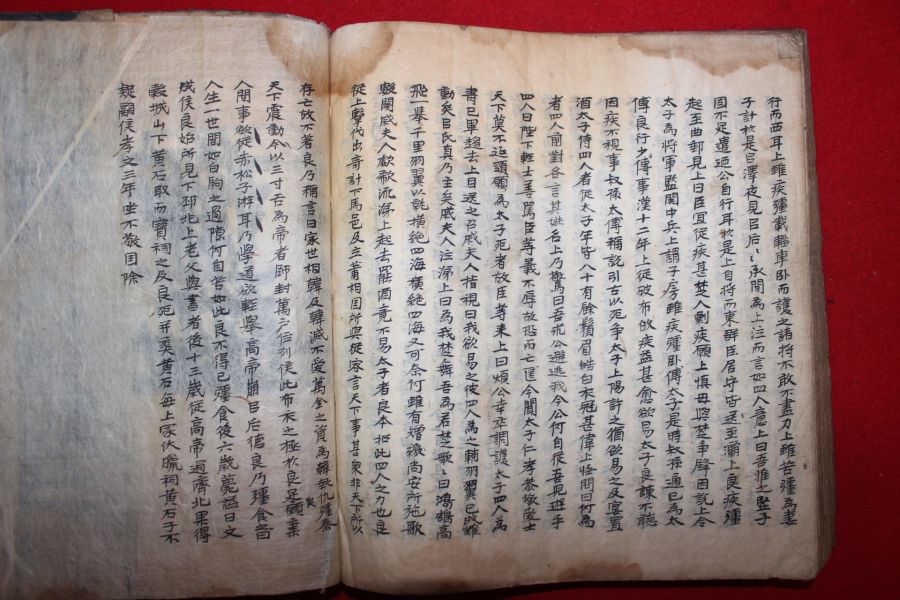 行而西耳上雖疾彊載輜車臥而護之諸將不敢不盡力上雖苦彊為妻
子計於是呂澤夜見呂后〻承間為上泣而言如四人意上曰吾惟之豎子
固不足遣迺公自行耳於是上自將而東群臣居守皆送至灞上良疾彊
起至曲郵見上曰臣宜從疾甚楚人剽疾願上慎毋與楚爭鋒因說上令
太子為將軍監關中兵上謂子房雖疾彊臥傅太子是時叔孫通已為太
傅良行少傅事漢十二年上從破布歸疾益甚愈欲易太子良諫不聽
因疾不視事叔孫太傅稱說引古以死爭太子上陽許之猶欲易之及宴置
酒太子侍四人者從太子年皆八十有餘鬚眉皓白衣冠甚偉上怪問曰何為
者四人前對各言其姓名上乃驚曰吾求公避逃我今公何自從吾兒遊乎
四人曰陛下輕士善罵臣等義不辱故恐而亡匿今聞太子仁孝恭敬愛士
天下莫不延頸願為太子死者故臣等來上曰煩公幸卒調護太子四人為
壽已畢趨去上目送之召戚夫人指視曰我欲易之彼四人為之輔羽翼已成難
動矣呂氏真乃主矣戚夫人泣涕上曰為我楚舞吾為若楚歌〻曰鴻鵠高
飛一舉千里羽翼以就橫絕四海橫絕四海又可奈何雖有矰繳尚安所施歌
數闋戚夫人歔欷流涕上起去罷酒竟不易太子者良本招此四人之力也良
從上擊代出奇計下馬邑及立蕭相國所與從容言天下事甚衆非天下所以
存亡故不著良乃稱言曰家世相韓及韓滅不愛萬金之資為韓報仇彊秦
天下震動今以三寸舌為帝者師封萬户位列侯此布衣之極於良足矣願棄
人間事欲從赤松子游耳乃學道欲輕舉高帝崩呂后德良乃彊食之曰
人生一世間如白駒之過隙何自苦如此良不得已彊食後六歲薨謚曰文
成侯良始所見下邳圯上老父與書者後十三歲從高帝過濟北果得
穀城山下黃石取而寶祠之及良死并葬黃石每上冢伏臘祠黃石子不
疑嗣侯孝文三年坐不敬國除